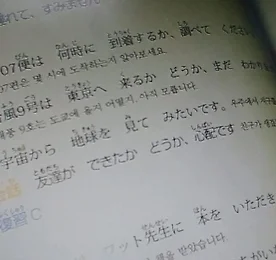 遅れて、すみません
07便は 何時に 到着するか、調べて ください
07편은 몇 시에 도착하는지 알아보세요.
台風9号は 東京へ 来るか どうか、まだ わかり
태풍 9호는 도쿄에 올지 어떨지, 아직 모릅니다.
宇宙から 地球を 見て みたいです。 우주에서
友達が できたか どうか、心配です 친구가
復習 C
ワット先生に 本を いただき
을 받았습니다.